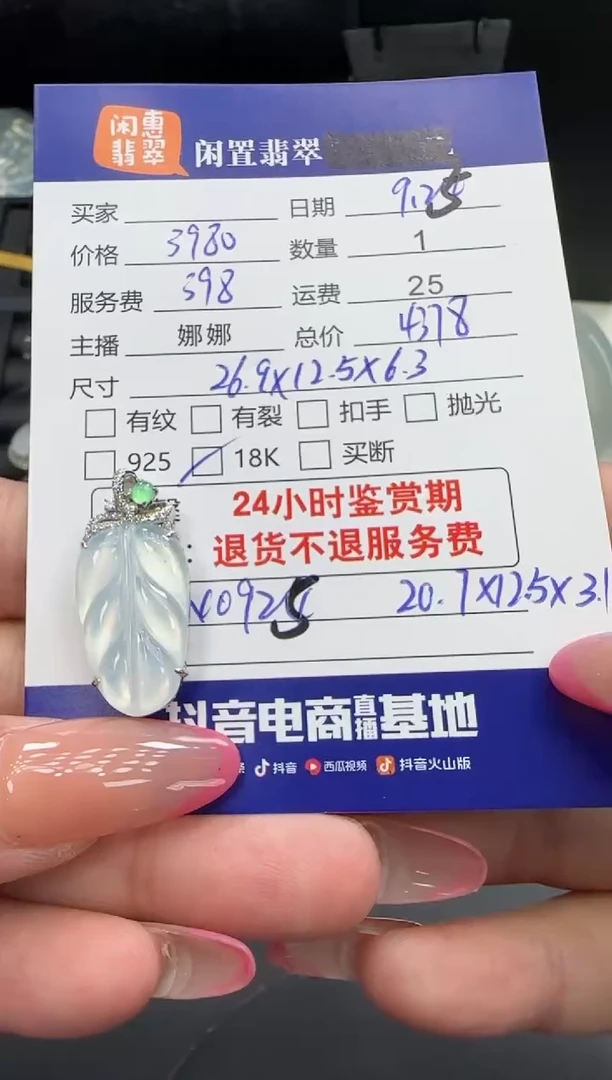 闲惠
翡翠
闲置翡翠
买家 日期 9.25
价格 3980 数量 1
服务费 398 运费 25
主播 娜娜 总价 4378
尺寸 26.9X12.5X6.3
有纹 有裂 扣手 抛光
925 18K 买断
24小时鉴赏期
: 退货不退服务费
0925 20.7X125X3.1
抖音电商直播基地
抖音 西瓜视频 抖音火山版